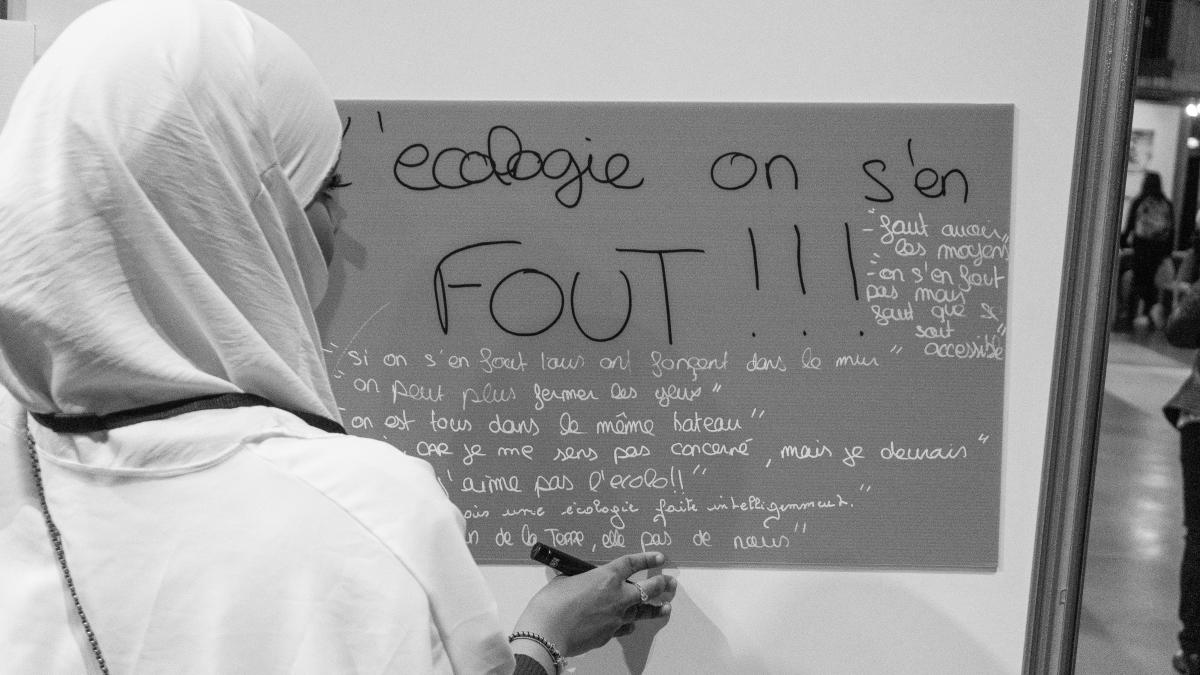 L'ecologie on s'en
FOUT !!!
-"faut avoir
les moyens"
"-on s'en fout
pas mais
faut que se
soit
accessible"
"si on s'en fout tous ont fonçent dans le mur"
"on peut plus fermer les yeux"
"on est tous dans le même bateau"
CAR je me sens pas concerné, mais je devrais"
j'aime pas l'ecolo!!"
une écologie faite intelligemment."
de la Terre, elle pas de nous"